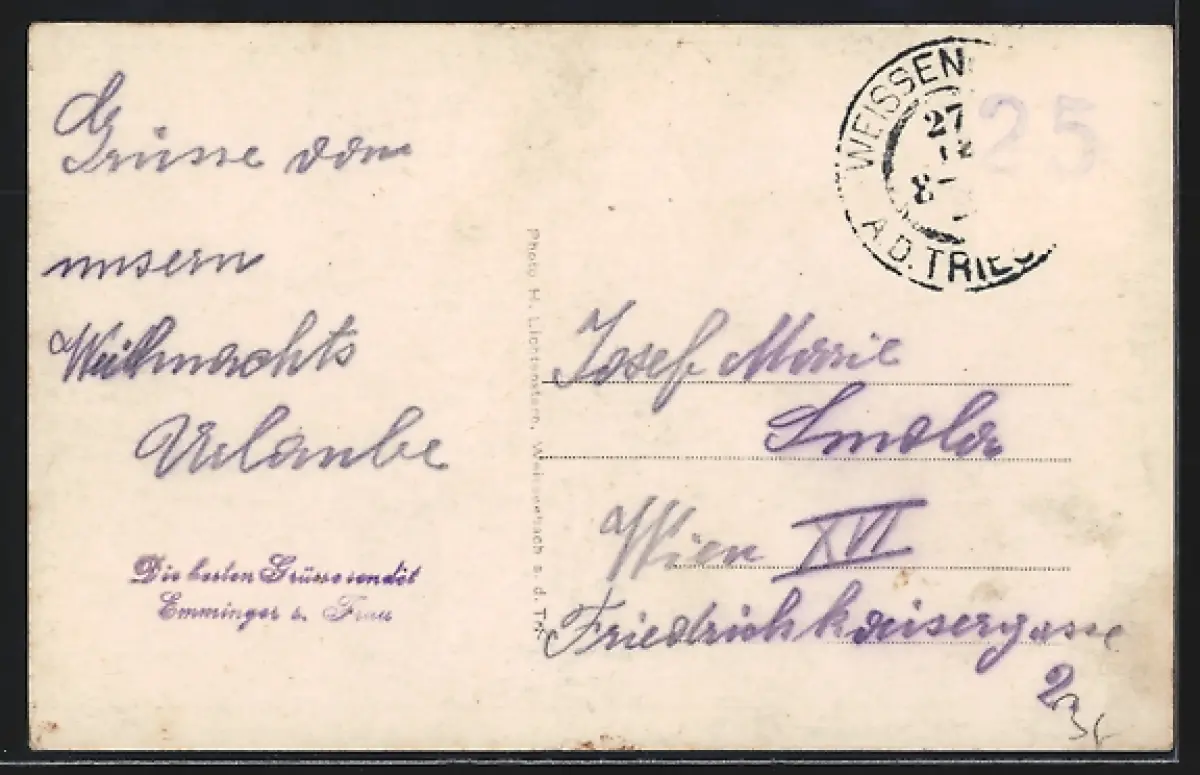 Grüsse vom
unsern
Weihnachts
Urlaube
Die besten Grüsse sendet
Emminger u. Frau
Photo H. Lichtenstern, Weissenbach a. d. Tr.
WEISSEN
27
12
8-
A.D. TRIES
25
Josef Marie
Smola
Wien XVI
Friedrichkaisergasse
2